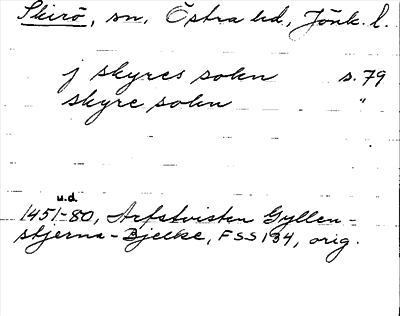 Skirö, sn, Östra hd, Jönk. l.
j skyres sokn s. 79
skyre sokn "
u.d.
1451-80, Arfstvisten Gyllen-
stjerna-Bjelke, FSS 134, orig.